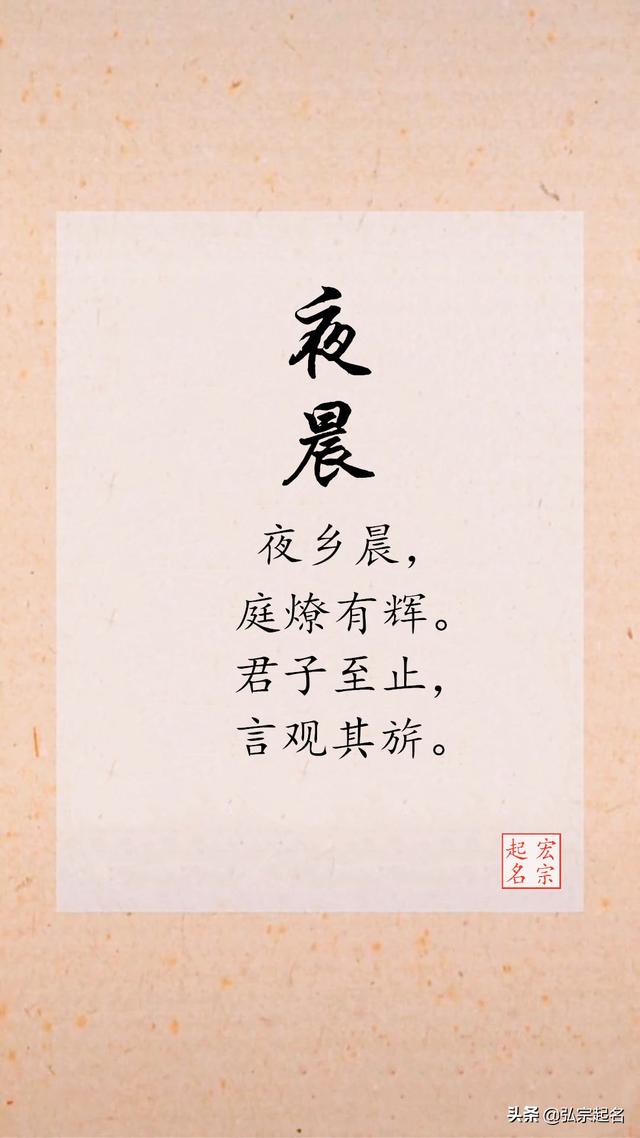 夜
晨
夜乡晨，
庭燎有辉。
君子至止，
言观其旂。
宏宗
起名
头条 @弘宗起名